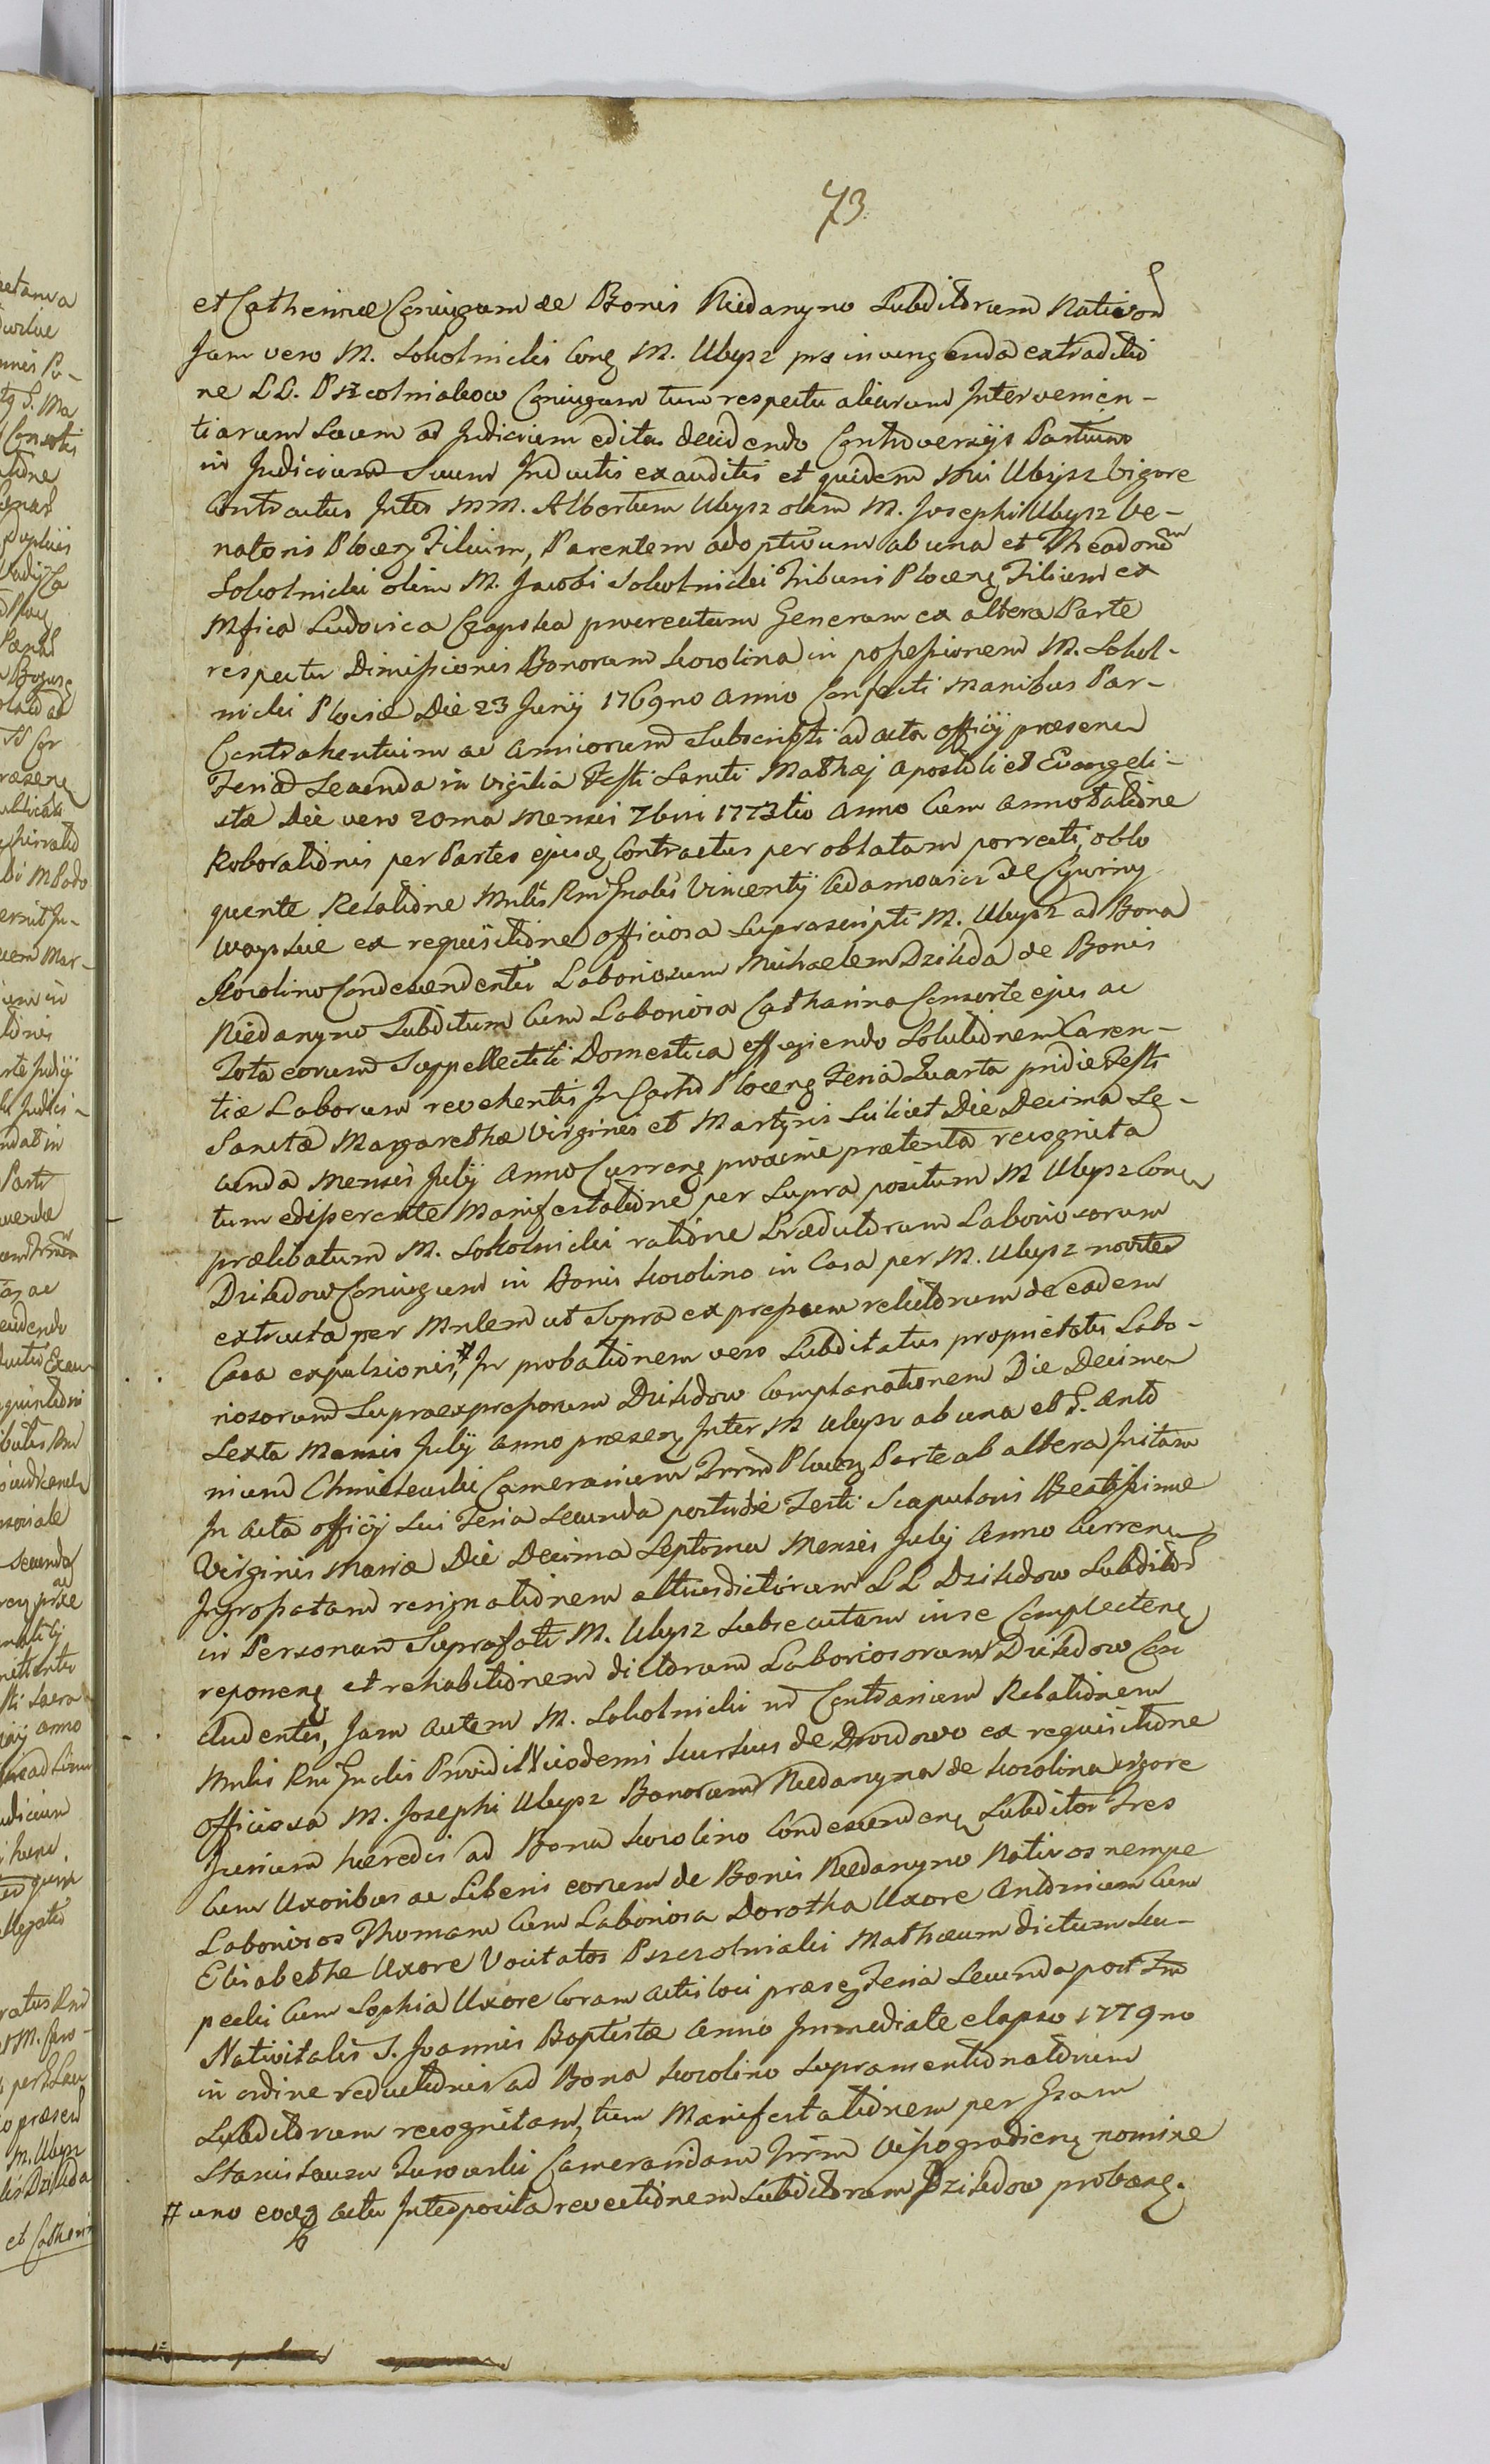 73
et Catherinæ Coniugum de Bonis Niedanyno Subditorum Nativor
Jam vero M. Sokolnicki Cong M. Ubysz pro iniungenda extraditio
ne LL. Pszcolniakow Coniugum tum respectu aliarum Intervenien-
tiarum Locum ad Judicium editas decidendo Controversijs Partium
in Judicium Suum Inductis exauditis et quidem Mci Ubysz vigore
Contractus Inter MM. Albertum Ubysz olim M. Josephi Ubysz Ve-
natoris Plocen Filium, Parentem adoptivum ab una et Theodorum
Sokolnicki olim M. Jacobi Sokolnicki Tribuni Plocen Filium ex
Mfica Ludovica Czapska procreatum Generum ex altera Parte
respectu Dimissionis Bonorum Srocolina in possessionem M. Sokol-
nicki Plociæ Die 23 Junij 1769no Anno Confecti Manibus Par
Contrahentium ac Amicorum Subscripti ad acta officij præsen
Feria Secunda in Vigilia Festi Sancti Mathæj Apostoli et Evangeli-
stæ Die vero 20ma Mensis 7bris 1773tio Anno Cum Annotatione
Roborationis per Partes ejusq Contractus per oblatam porrecti, oblo
quente Relatione Mnlis Rni Gnalis Vincentij Adamowicz de
wopskie ex requisitione officiosa Suprascripti M. Ubysz ad Bona
Srocolino Condescendentis Laboriosum Michaelem Dzikda de Bonis
Niedanyno Subditum Cum Laboriosa Catharina Consorte ejus ac
Tota eorum Suppellectili Domestica effugiendo Solutionem Caren-
tiæ Laborum revehentis In Castro Plocen Feria Quarta pridie Festi
Sanctæ Margarethæ Virginis et Martyris Scilicet Die Decima Se-
cunda Mensis Julij Anno Curren proxime præterita recognita
tum edisserente Manifestatione per Supra positum M Ubysz Con
prælibatum M. Sokolnicki ratione Præductorum Laboriosorum
Dzikdow Coniugum in Bonis Srocolino in Casa per M. Ubysz noviter
extructa per Mnlem ut Supra expressum relictorum de eadem
Casa expulsionis,# In probationem vero Subditatus proprietatis Labo-
riosorum Supraexpressorum Dzikdow Complanationem Die Decima
Sexta Mensis Julij Anno præsen Inter M Ubysz ab una et G. Anto
nium Chmielewski Camerarium Trrm Plocen Parte ab altera Initam
In Acta officij Sui Feria Secunda postridie Festi Scapularis Beatissimæ
Virginis Mariæ Die Decima Septima Mensis Julij Anno Curren
Ingrossatam resignationem altius dictorum LL Dzikdow Subditor
in Personam Suprafati M. Ubysz Subsecutam in se Complecten
reponen et rehabitionem dictorum Laboriosorum Dzikdow Con
cludentis, Jam Autem M. Sokolnicki in Contrarium Relationem
Mnlis Rni Gnalis Providi Nicodemi de Drozdowo ex requisitione
officiosa M. Josephi Ubysz Bonorum Niedanyna de Srocolina vigore
Jurium hæredis ad Bona Srocolino Condescenden Subditos Tres
Cum Uxoribus ac Liberis eorum de Bonis Niedanyno Nativos nempe
Laboriosos Thomam Cum Laboriosa Dorotha Uxore Antonium Cum
Elisabetha Uxore Vocitatos Pszczolniaki Mathæum dictum Ku-
pecki Cum Sophia Uxore Coram Actis loci præsen Feria Secunda post Fm
Nativitatis S. Joannis Baptistæ Anno Immediate elapso 1779no
in ordine reductionis ad Bona Srocolino Supramentionatorum
Subditorum recognitam, tum Manifestationem per Gsam
Stanislaum Turowski Camerandam Trrm Vissogradien nomine
# uno eoq actu Interposita revectionem Subditorum Dzikdow probans.